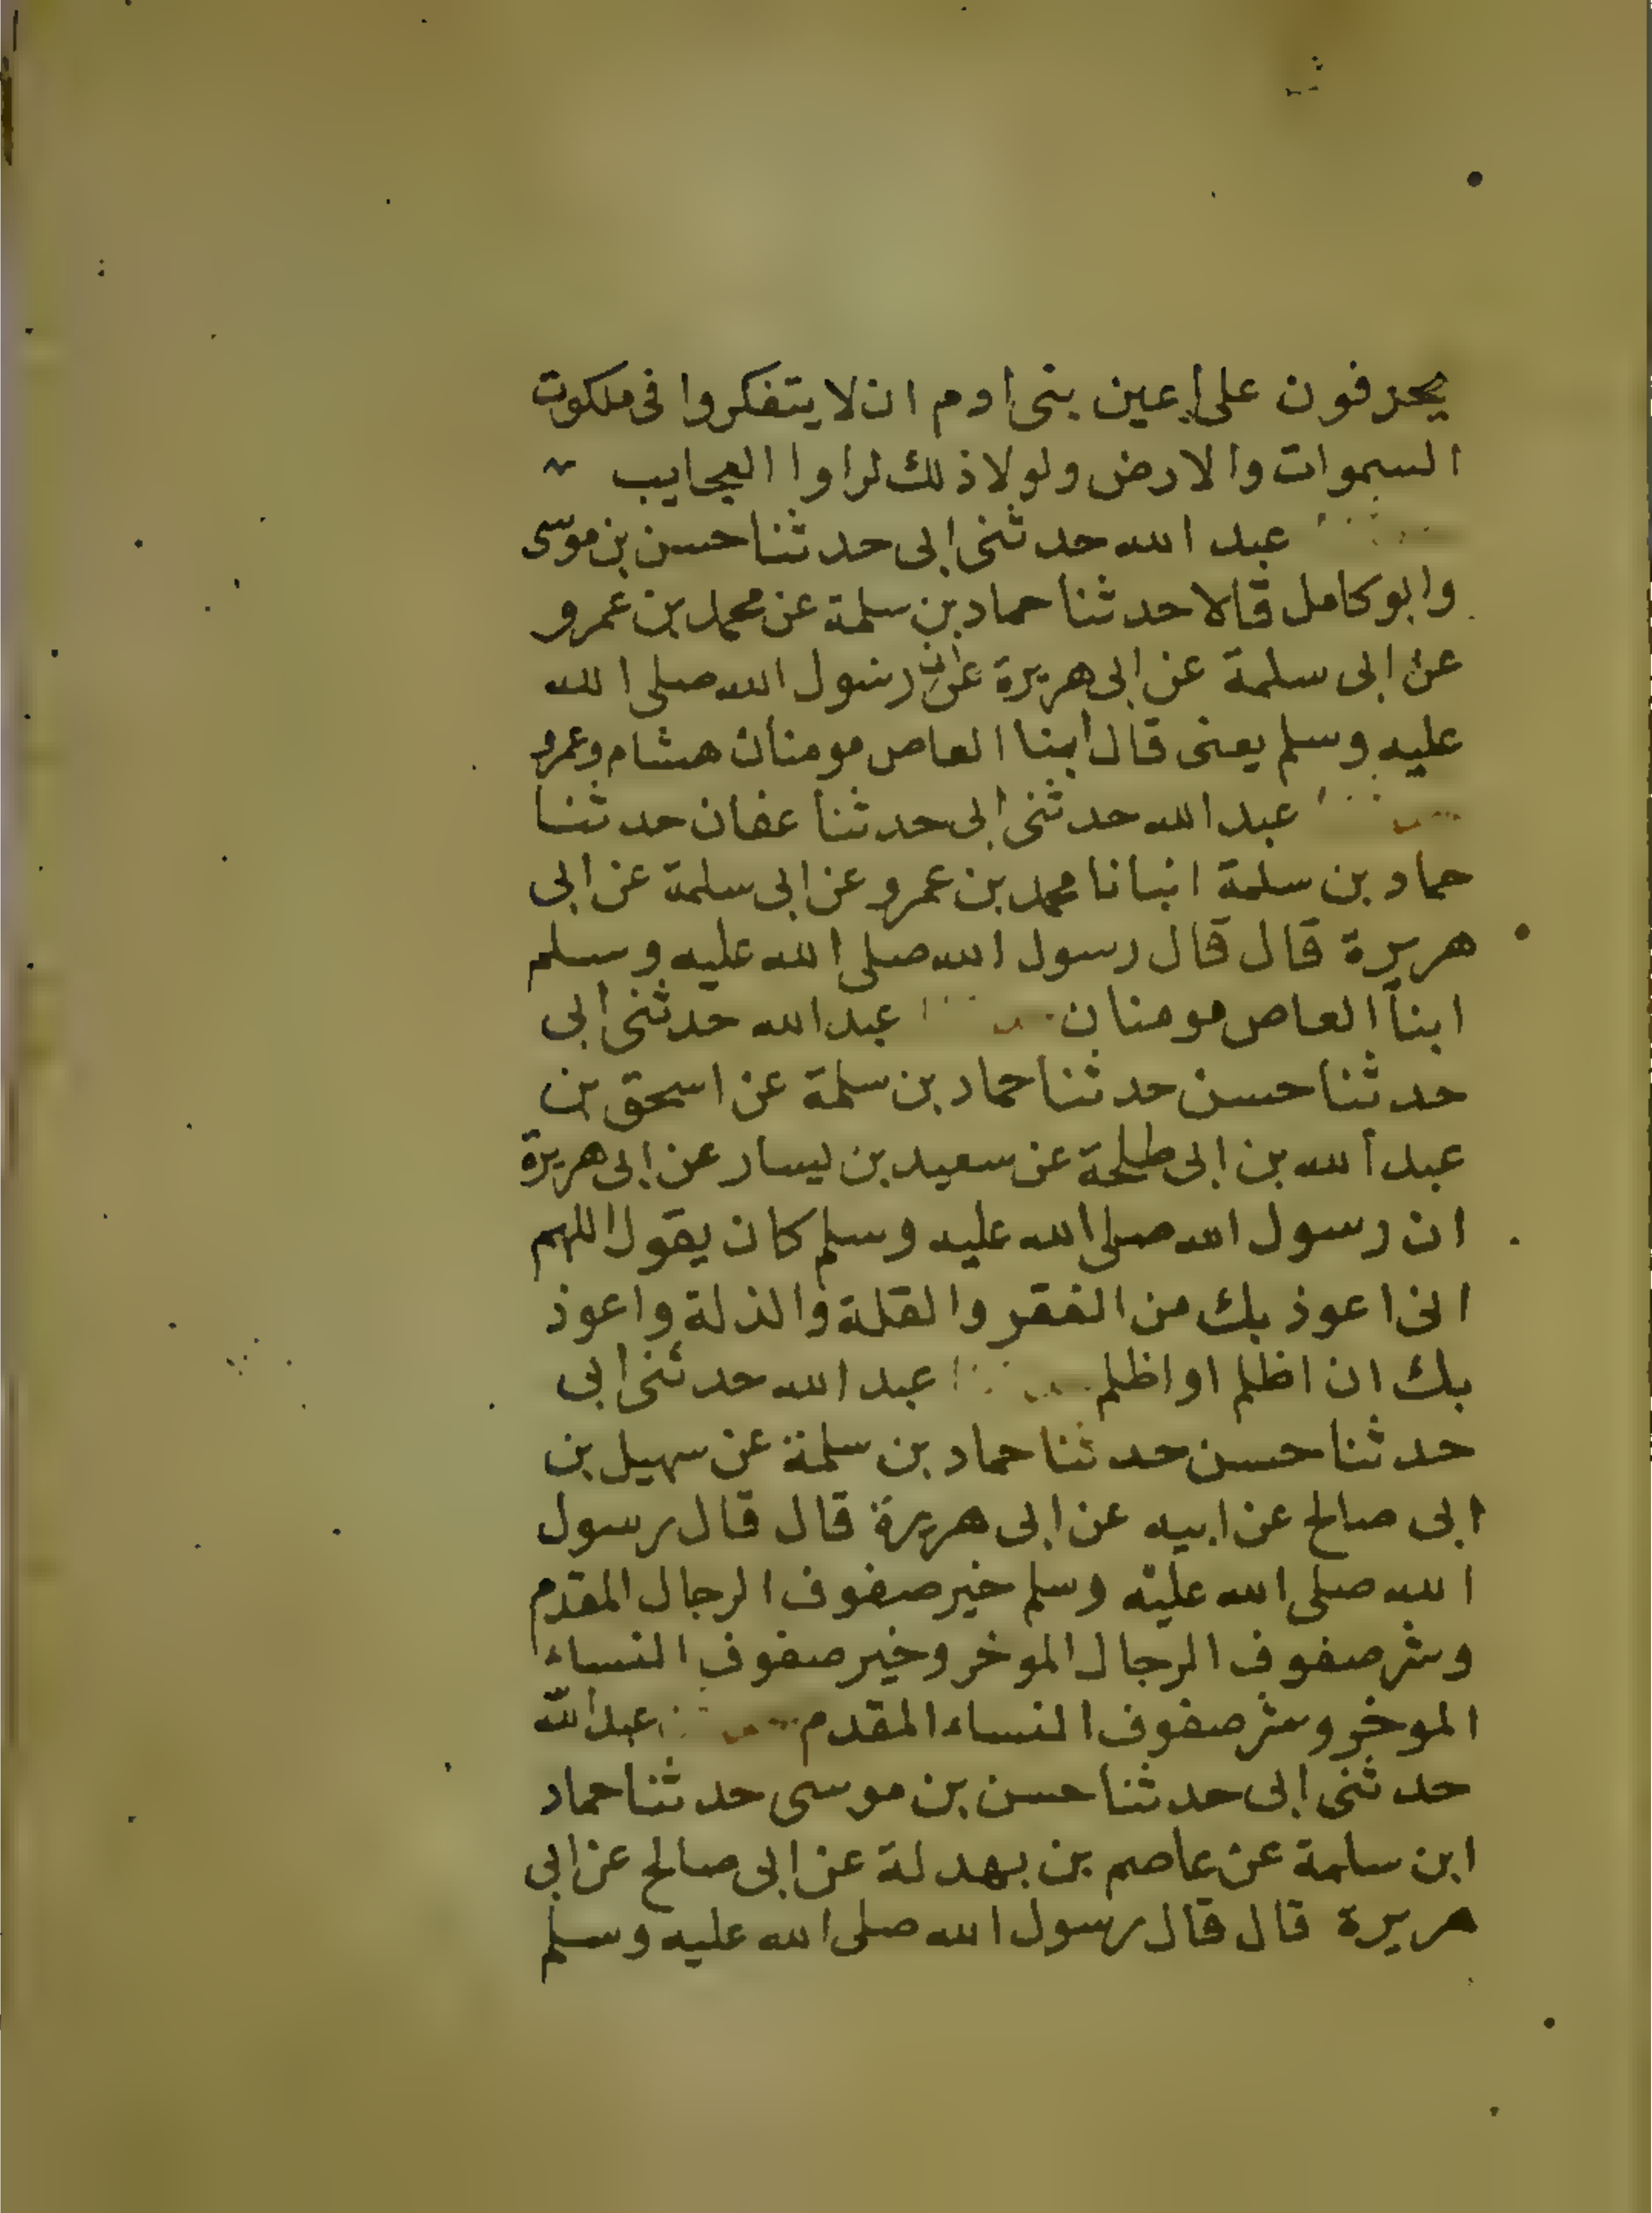 يحرفون على اعين بنى ادم ان لا يتفكروا فى ملكوت
السموات والارض ولولا ذلك لراوا العجايب
عبد الله حدثنى ابى حدثنا حسن بن موسى
وابو كامل قالا حدثنا حماد بن سلمة عن محمد بن عمرو
عن ابى سلمة عن ابى هريرة رسول الله صلى الله
عليه وسلم يعنى قال ابنا العاص مومنان هشام وعمرو
عبد الله حدثنى ابى حدثنا عفان حدثنا
حماد بن سلمة انبانا محمد بن عمرو عن ابى سلمة عن ابى
هريرة قال قال رسول الله صلى الله عليه وسلم
ابنا العاص مومنان عبد الله حدثنى ابى
حدثنا حسن حدثنا حماد بن سلمة عن اسحق بن
عبد الله بن ابى طلحة عن سعيد بن يسار عن ابى هريرة
ان رسول الله صلى الله عليه وسلم كان يقول اللهم
انى اعوذ بك من الفقر والقلة والذلة واعوذ
بك ان اظلم او اظلم عبد الله حدثنى ابى
حدثنا حسن حدثنا حماد بن سلمة عن سهيل بن
ابى صالح عن ابيه عن ابى هريرة قال قال رسول
الله صلى الله عليه وسلم خير صفوف الرجال المقدم
وشر صفوف الرجال الموخر وخير صفوف النساء
الموخر وشر صفوف النساء المقدم عبد الله
حدثنى ابى حدثنا حسن بن موسى حدثنا حماد
ابن سلمة عن عاصم بن بهدلة عن ابى صالح عن ابى
هريرة قال قال رسول الله صلى الله عليه وسلم